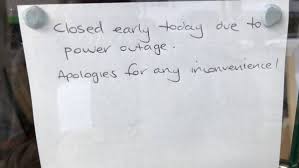 Closed early today due to
power outage.
Apologies for any inconvenience!